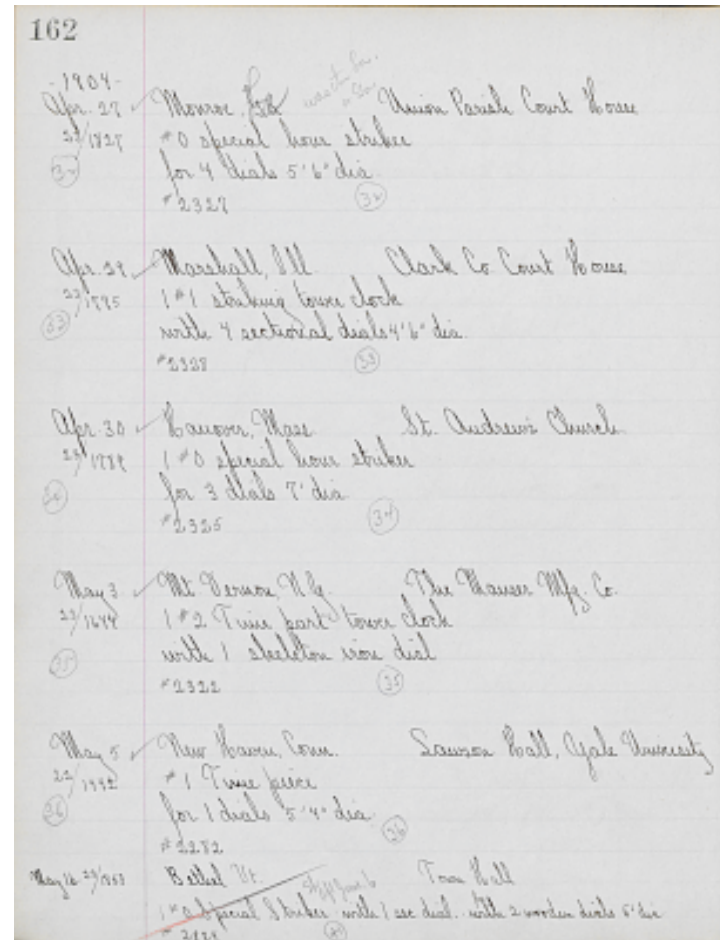 162
-1904-
Apr. 27 ✓ Monroe, Union Parish Court House
23/1827 #0 special hour striker
32 for 4 dials 5'6" dia.
#2327 32
Apr. 29 ✓ Marshall, Ill. Clark Co. Court House
23/1885 1 #1 striking tower clock
33 with 4 sectional dials 4'6" dia.
#2328 33
Apr. 30 ✓ Hanover, Mass. St. Andrew's Church
1 #0 special hour striker
for 3 dials 7' dia.
#2325 34
May 3 ✓ Mt. Vernon, N.Y. The Mauser Mfg. Co.
23/1644 1 #2 Time part tower clock
35 with 1 skeleton iron dial
#2322 35
May 5 ✓ New Haven, Conn. Hall, Yale University
#1 Time piece
36 for 1 dials 5'4" dia.
#2282 36
May 16 Bethel Vt. Town Hall
1 #0 Special Striker with 1 sec dial. with 2 wooden dials 6' dia